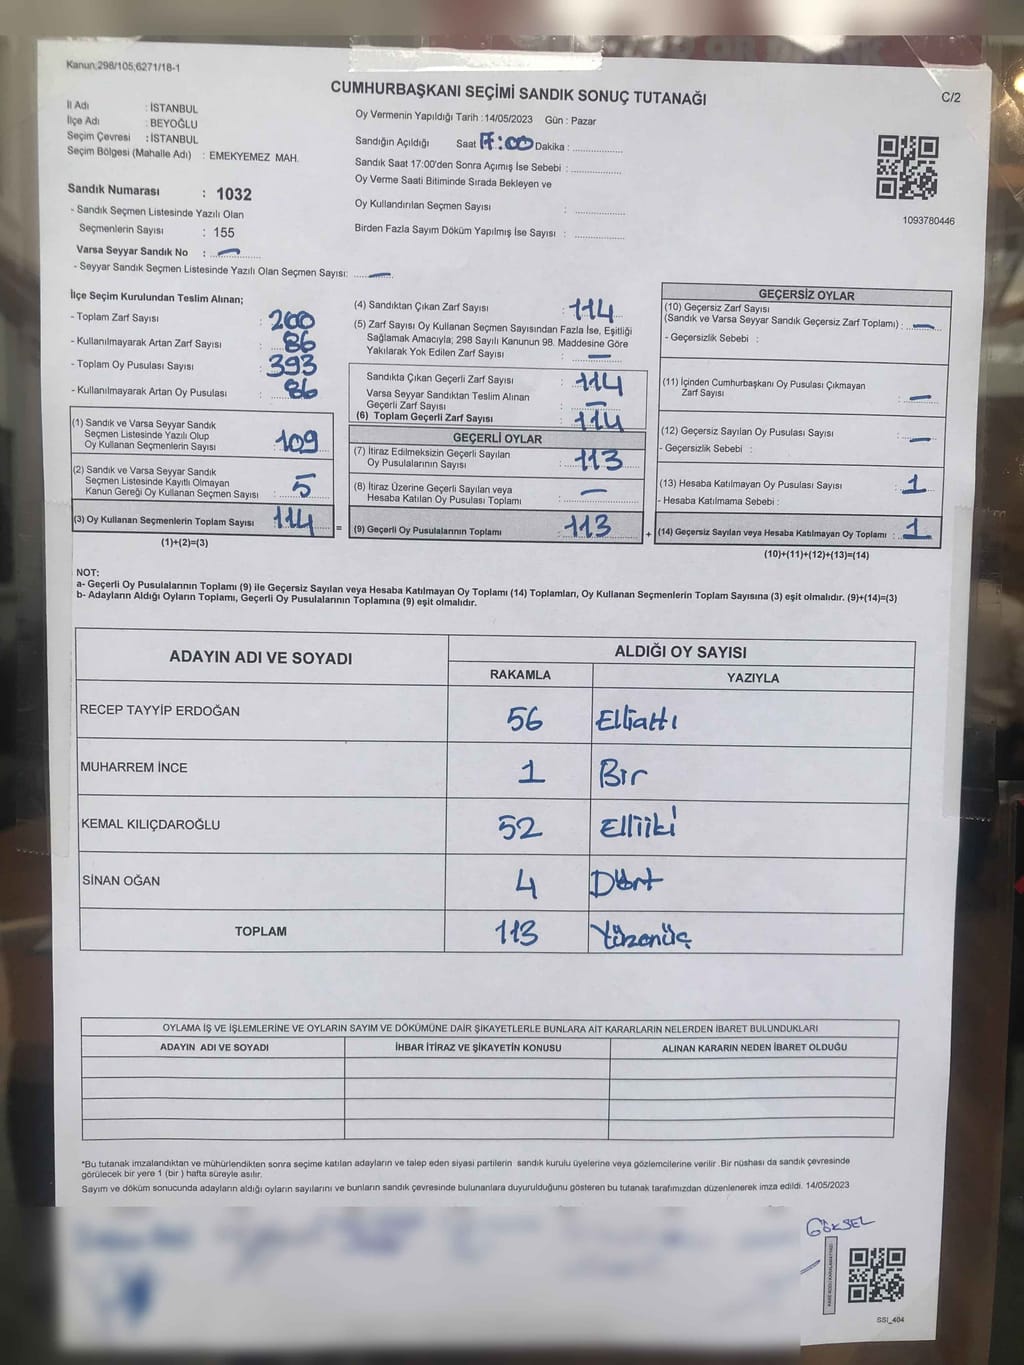 Kanun;298/105,6271/18-1
CUMHURBAŞKANI SEÇİMİ SANDIK SONUÇ TUTANAĞI
C/2
İl Adı : İSTANBUL
İlçe Adı : BEYOĞLU
Seçim Çevresi : İSTANBUL
Seçim Bölgesi (Mahalle Adı) : EMEKYEMEZ MAH.
Sandık Numarası : 1032
- Sandık Seçmen Listesinde Yazılı Olan
Seçmenlerin Sayısı : 155
Varsa Seyyar Sandık No : —
- Seyyar Sandık Seçmen Listesinde Yazılı Olan Seçmen Sayısı: —
Oy Vermenin Yapıldığı Tarih : 14/05/2023 Gün : Pazar
Sandığın Açıldığı Saat 17:00 Dakika : ................
Sandık Saat 17:00'den Sonra Açımış İse Sebebi : ................
Oy Verme Saati Bitiminde Sırada Bekleyen ve
Oy Kullandırılan Seçmen Sayısı : ................
Birden Fazla Sayım Döküm Yapılmış İse Sayısı : ................
1093780446
İlçe Seçim Kurulundan Teslim Alınan;
- Toplam Zarf Sayısı : 200
- Kullanılmayarak Artan Zarf Sayısı : 86
- Toplam Oy Pusulası Sayısı : 393
- Kullanılmayarak Artan Oy Pusulası : 86
(1) Sandık ve Varsa Seyyar Sandık
Seçmen Listesinde Yazılı Olup
Oy Kullanan Seçmenlerin Sayısı : 109
(2) Sandık ve Varsa Seyyar Sandık
Seçmen Listesinde Kayıtlı Olmayan
Kanun Gereği Oy Kullanan Seçmen Sayısı : 5
(3) Oy Kullanan Seçmenlerin Toplam Sayısı : 114 =
(1)+(2)=(3)
(4) Sandıktan Çıkan Zarf Sayısı : 114
(5) Zarf Sayısı Oy Kullanan Seçmen Sayısından Fazla İse, Eşitliği
Sağlamak Amacıyla; 298 Sayılı Kanunun 98. Maddesine Göre
Yakılarak Yok Edilen Zarf Sayısı : —
Sandıkta Çıkan Geçerli Zarf Sayısı : 114
Varsa Seyyar Sandıktan Teslim Alınan
Geçerli Zarf Sayısı : —
(6) Toplam Geçerli Zarf Sayısı : 114
GEÇERLİ OYLAR
(7) İtiraz Edilmeksizin Geçerli Sayılan
Oy Pusulalarının Sayısı : 113
(8) İtiraz Üzerine Geçerli Sayılan veya
Hesaba Katılan Oy Pusulası Toplamı : —
(9) Geçerli Oy Pusulalarının Toplamı : 113 +
GEÇERSİZ OYLAR
(10) Geçersiz Zarf Sayısı
(Sandık ve Varsa Seyyar Sandık Geçersiz Zarf Toplamı) : —
- Geçersizlik Sebebi :
(11) İçinden Cumhurbaşkanı Oy Pusulası Çıkmayan
Zarf Sayısı : —
(12) Geçersiz Sayılan Oy Pusulası Sayısı : —
- Geçersizlik Sebebi :
(13) Hesaba Katılmayan Oy Pusulası Sayısı : 1
- Hesaba Katılmama Sebebi :
(14) Geçersiz Sayılan veya Hesaba Katılmayan Oy Toplamı : 1
(10)+(11)+(12)+(13)=(14)
NOT:
a- Geçerli Oy Pusulalarının Toplamı (9) ile Geçersiz Sayılan veya Hesaba Katılmayan Oy Toplamı (14) Toplamları, Oy Kullanan Seçmenlerin Toplam Sayısına (3) eşit olmalıdır. (9)+(14)=(3)
b- Adayların Aldığı Oyların Toplamı, Geçerli Oy Pusulalarının Toplamına (9) eşit olmalıdır.
ADAYIN ADI VE SOYADI ALDIĞI OY SAYISI
RAKAMLA YAZIYLA
RECEP TAYYİP ERDOĞAN 56 Elliattı
MUHARREM İNCE 1 Bir
KEMAL KILIÇDAROĞLU 52 Elliiki
SİNAN OĞAN 4 Dört
TOPLAM 113 Yüzonüç
OYLAMA İŞ VE İŞLEMLERİNE VE OYLARIN SAYIM VE DÖKÜMÜNE DAİR ŞİKAYETLERLE BUNLARA AİT KARARLARIN NELERDEN İBARET BULUNDUKLARI
ADAYIN ADI VE SOYADI İHBAR İTİRAZ VE ŞİKAYETİN KONUSU ALINAN KARARIN NEDEN İBARET OLDUĞU
*Bu tutanak imzalandıktan ve mühürlendikten sonra seçime katılan adayların ve talep eden siyasi partilerin sandık kurulu üyelerine veya gözlemcilerine verilir .Bir nüshası da sandık çevresinde
görülecek bir yere 1 (bir ) hafta süreyle asılır.
Sayım ve döküm sonucunda adayların aldığı oyların sayılarını ve bunların sandık çevresinde bulunanlara duyurulduğunu gösteren bu tutanak tarafımızdan düzenlenerek imza edildi. 14/05/2023
GÖKSEL
SSI_404